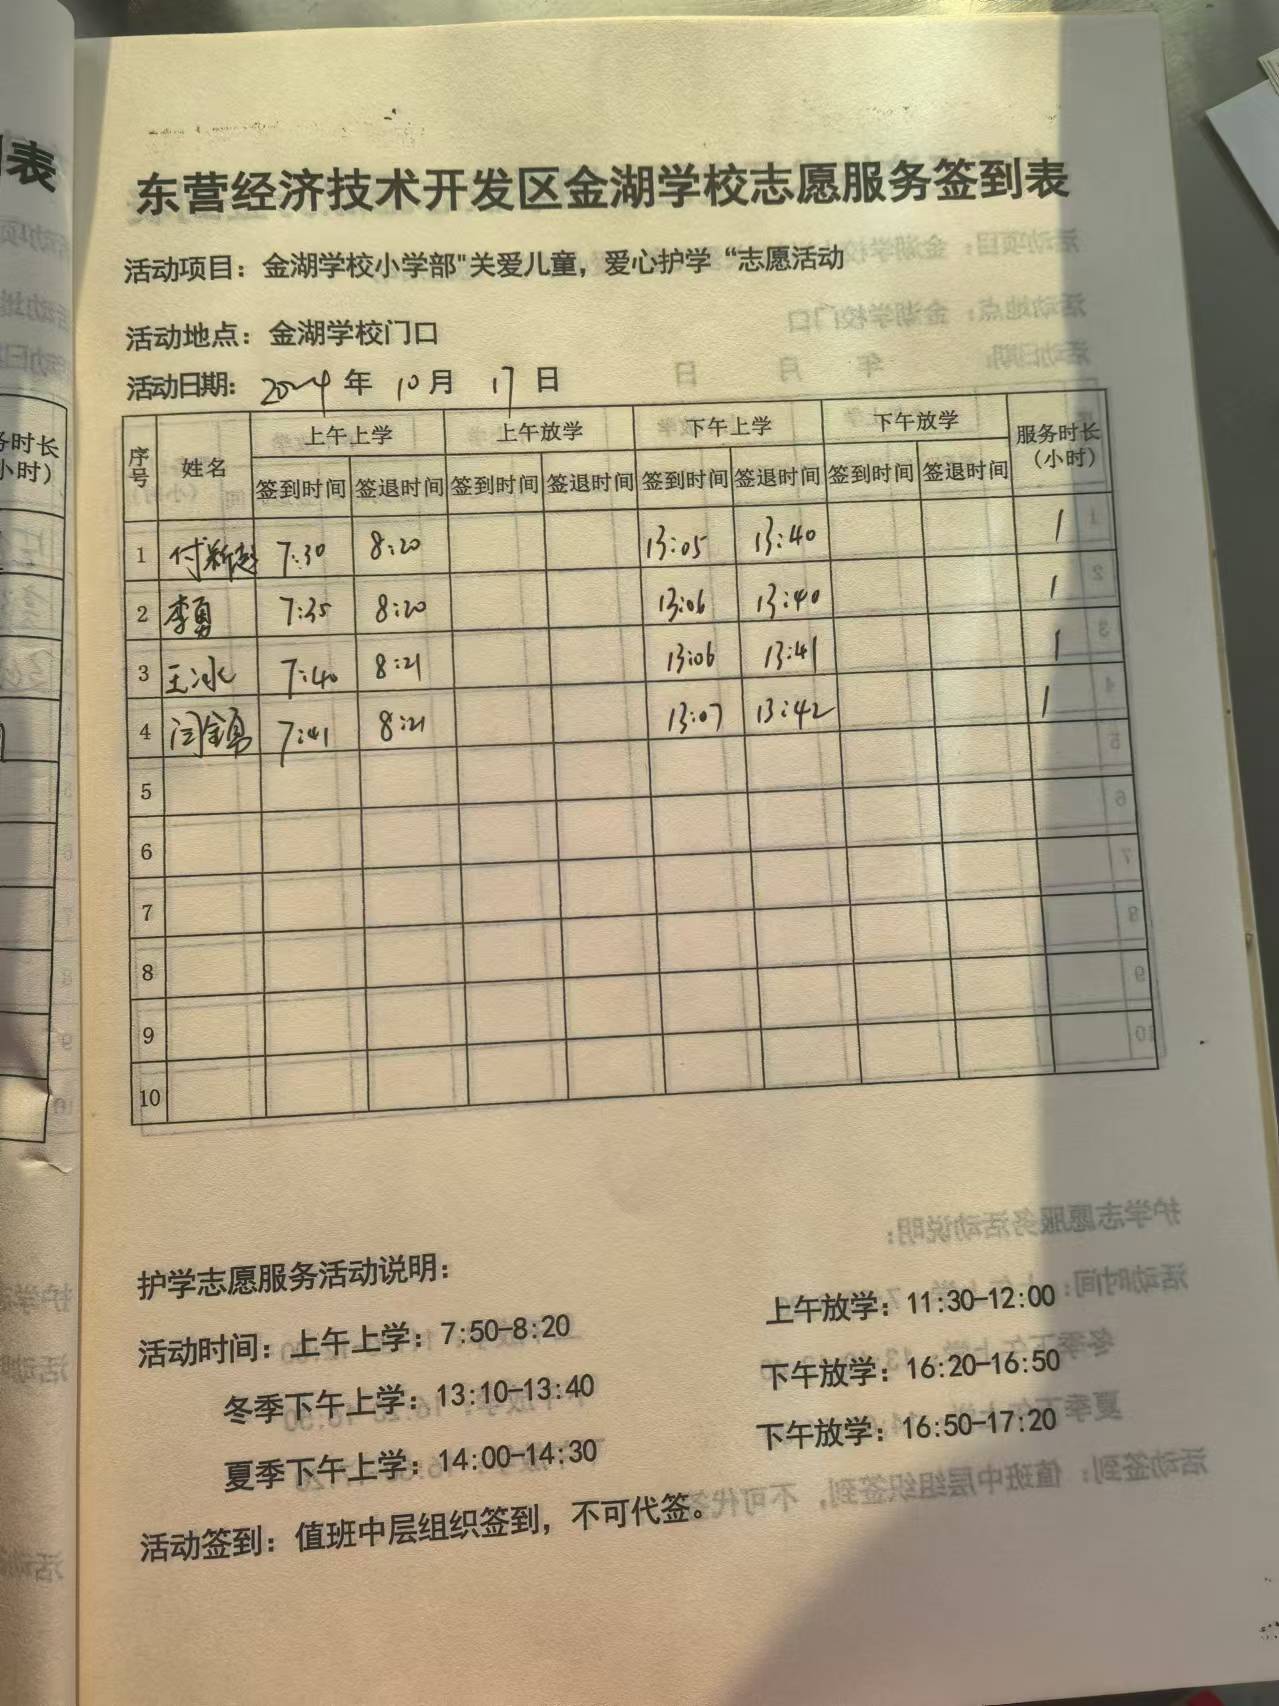 东营经济技术开发区金湖学校志愿服务签到表
活动项目：金湖学校小学部"关爱儿童，爱心护学“志愿活动
活动地点：金湖学校门口
活动日期：2024年10月17日
序号 姓名 上午上学 上午放学 下午上学 下午放学 服务时长（小时）
签到时间 签退时间 签到时间 签退时间 签到时间 签退时间 签到时间 签退时间
1 付新 7:30 8:20 13:05 13:40 1
2 李勇 7:35 8:20 13:06 13:40 1
3 王冰 7:40 8:21 13:06 13:41 1
4 闫金勇 7:41 8:21 13:07 13:42 1
5
6
7
8
9
10
护学志愿服务活动说明：
活动时间：上午上学：7:50-8:20 上午放学：11:30-12:00
冬季下午上学：13:10-13:40 下午放学：16:20-16:50
夏季下午上学：14:00-14:30 下午放学：16:50-17:20
活动签到：值班中层组织签到，不可代签。